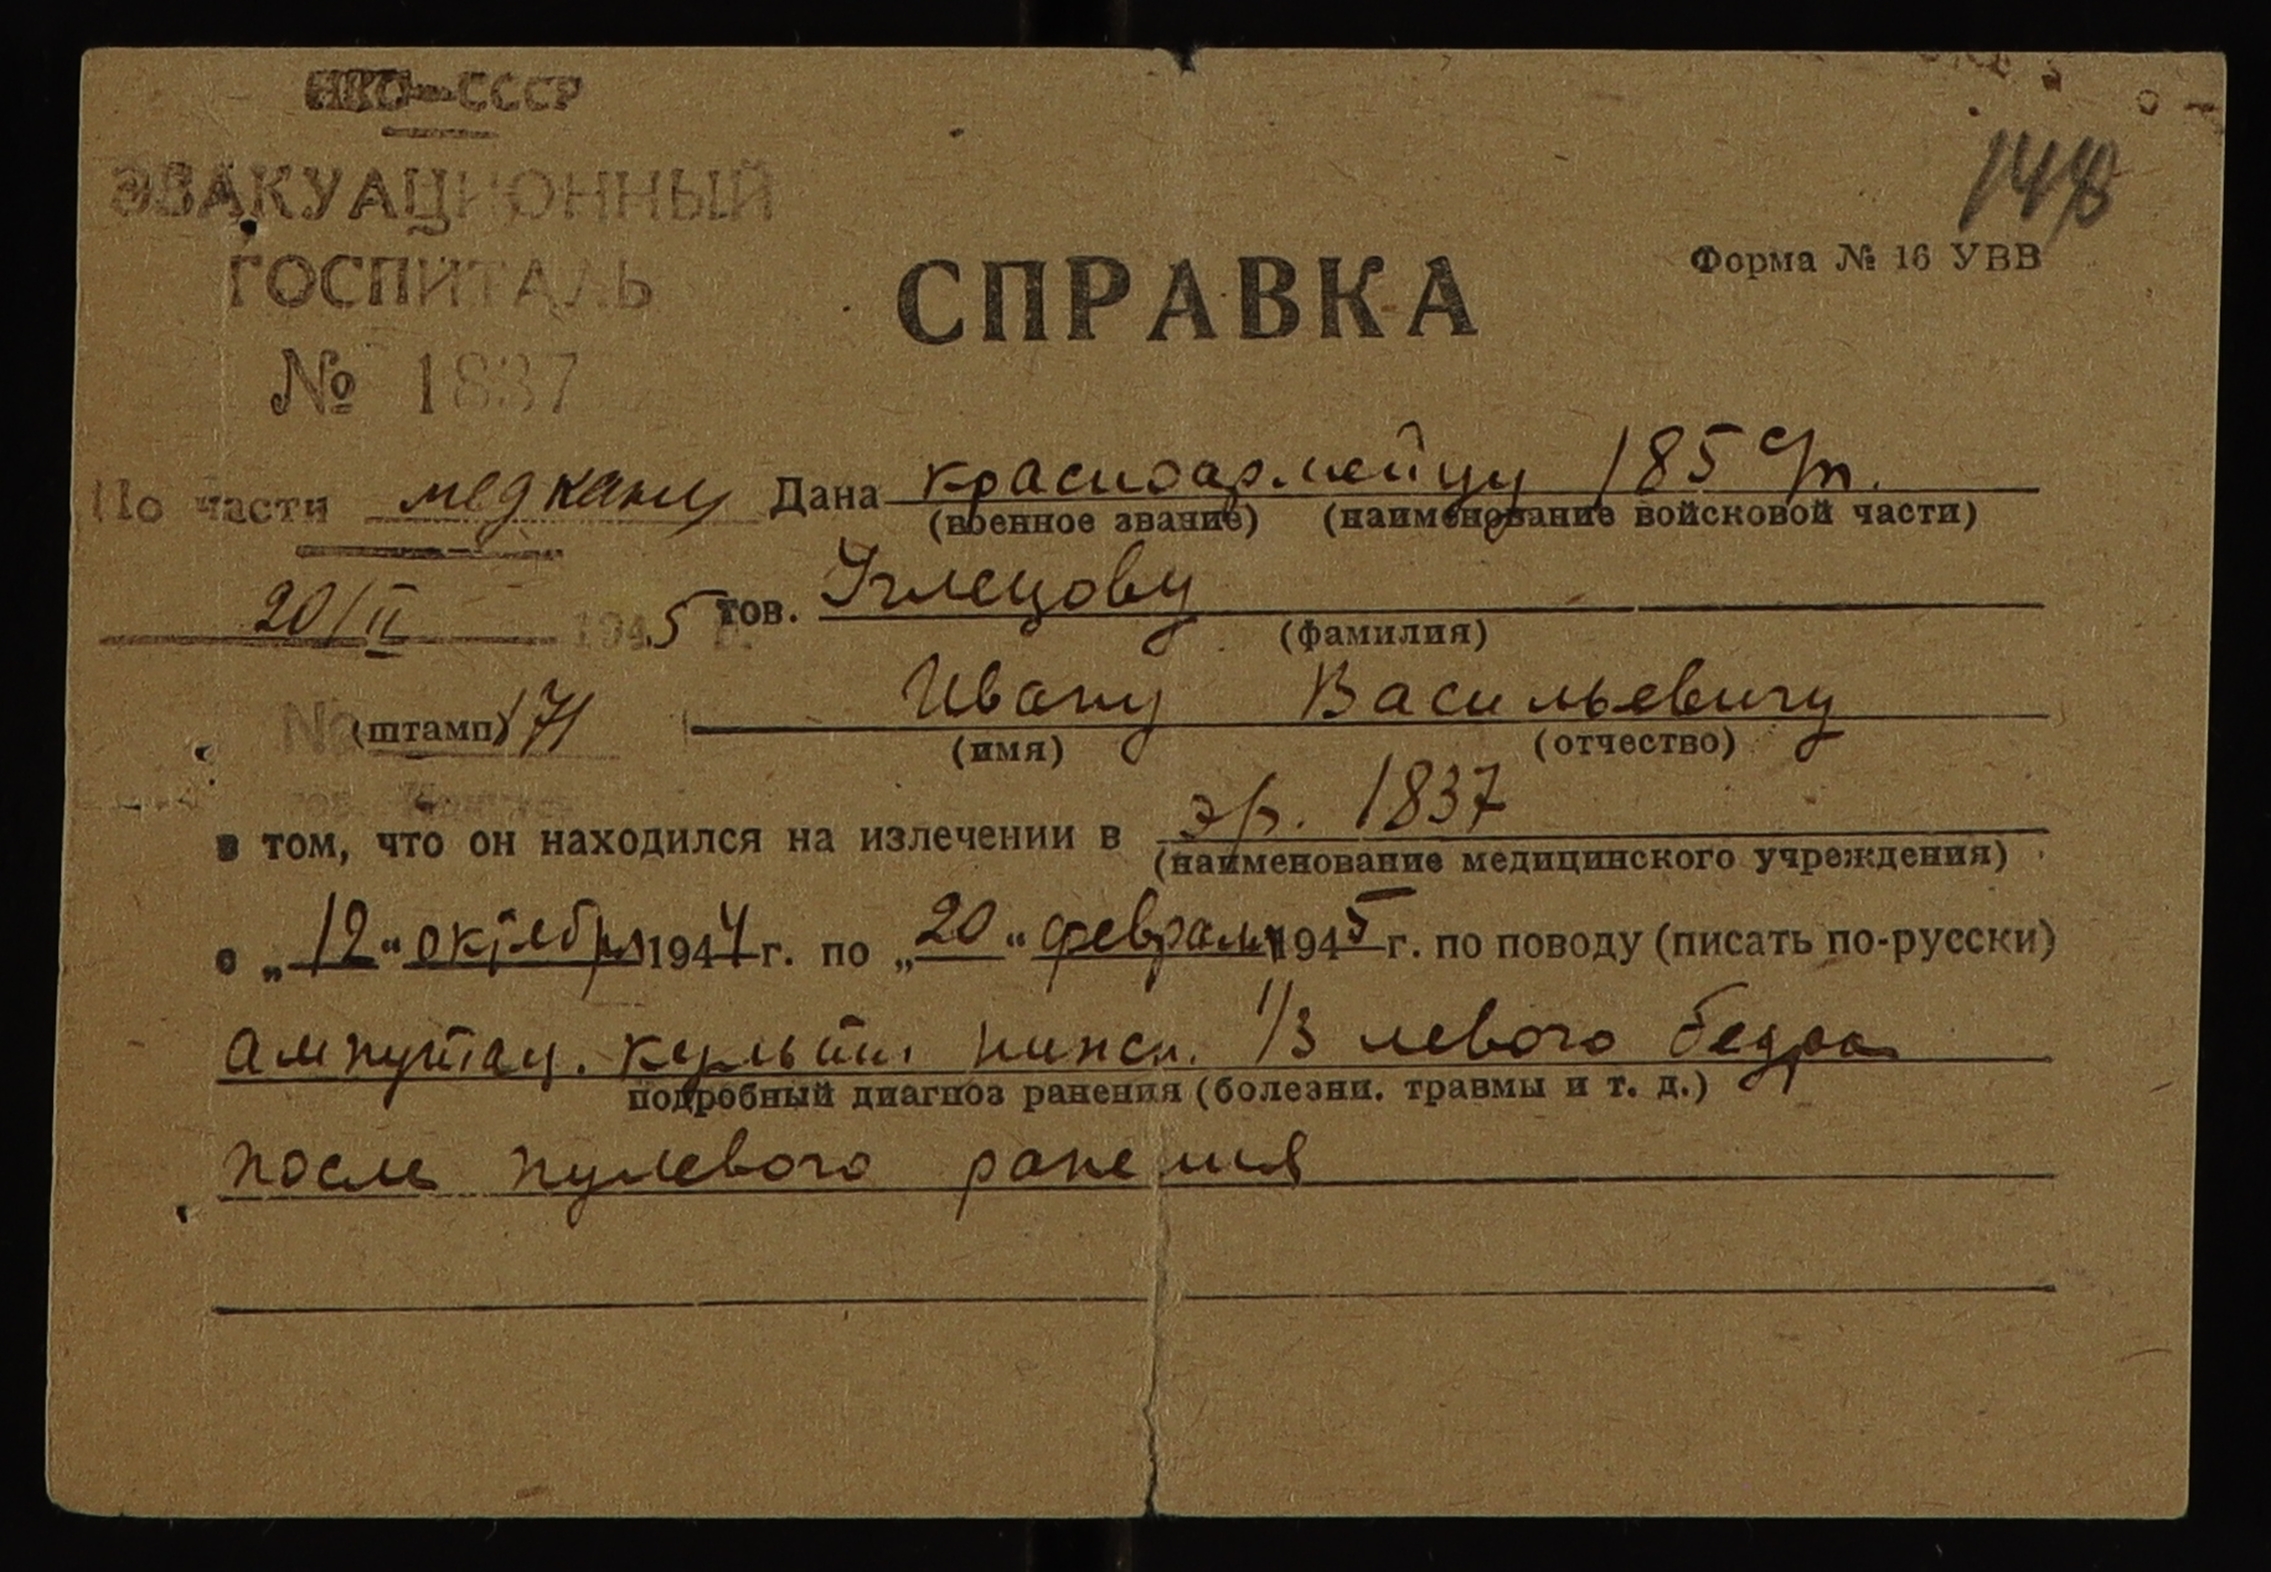 НКО-СССР
ЭВАКУАЦИОННЫЙ
ГОСПИТАЛЬ
№ 1837
По части
20/II 1945 г.
№ 171
(штамп)
Форма № 16 УВВ
СПРАВКА
Дана красноармейцу 185
(военное звание) (наименование войсковой части)
тов. Углецову
(фамилия)
Ивану Васильевичу
(имя) (отчество)
в том, что он находился на излечении в эг. 1837
(наименование медицинского учреждения)
с „12“ октября 1944 г. по „20“ февраля 1945 г. по поводу (писать по-русски)
Ампутац. культя нижн. 1/3 левого бедра
подробный диагноз ранения (болезни, травмы и т. д.)
после пулевого ранения